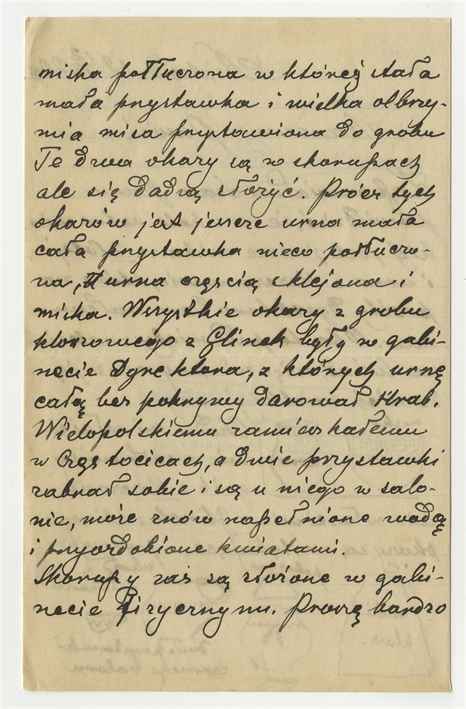 miska potłuczona w której stała
mała przystawka i wielka olbrzy-
mia misa przystawiona do grobu
Te dwa okazy są w skorupach
ale się dadzą złożyć. Prócz tych
okazów jest jeszcze urna mała
cała przystawka nieco potłuczo-
na, urna częścią sklejona i
miska. Wszystkie okazy z grobu
kloszowego z Glinek były w gabi-
necie Dyrektora, z których urnę
całą bez pokrywy darował Hrab.
Wielopolskiemu zamieszkałemu
w Częstocicach, a dwie przystawki
zabrał sobie i są u niego w salo-
nie, może znów napełnione wodą
i przyozdobione kwiatami.
Skorupy zaś są złożone w gabi-
necie Fizycznym. Proszę bardzo